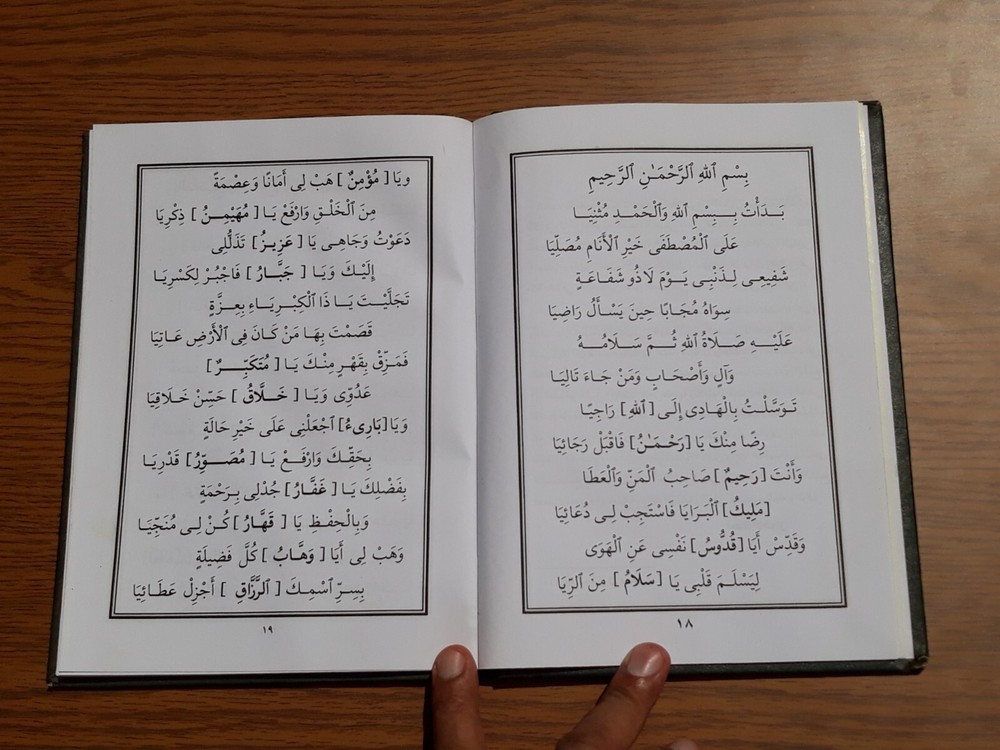 بِسْمِ ٱللهِ ٱلرَّحْمَـٰنِ ٱلرَّحِيمِ
بَـدَأْتُ بِـــبِسْمِ ٱللهِ وَٱلْحَمْـدِ مُثْنِيَــا
عَلَى ٱلْمُصْطَفَى خَيْرِ ٱلْأَنَامِ مُصَلِّيَا
شَفِيعِى لِـذَنْبِى يَــوْمَ لَا ذُو شَفَـاعَـةٍ
سِوَاهُ مُجَابًا حِينَ يَسْـأَلُ رَاضِيَا
عَلَيْــهِ صَـلَاةُ ٱللهِ ثُــمَّ سَــلَامُــهُ
وَآلٍ وَأَصْحَـابٍ وَمَنْ جَـاءَ تَالِيَا
تَـوَسَّلْـتُ بِالْهَـادِى إِلَـى [ٱللهِ] رَاجِيًـا
رِضًا مِنْكَ يَا [رَحْمَـٰنُ] فَاقْبَلْ رَجَائِيَا
وَأَنْتَ [رَحِيمٌ] صَاحِبُ ٱلْمَنِّ وَٱلْعَطَا
[مَلِيكُ] ٱلْبَـرَايَا فَاسْتَجِبْ لِـى دُعَائِيَا
وَقَدِّسْ أَيَا [قُدُّوسُ] نَفْسِى عَنِ ٱلْهَوَى
لِيَسْلَـمَ قَلْبِى يَا [سَلَامُ] مِنَ ٱلرِّيَا
١٨
ويَا [مُؤْمِنٌ] هَبْ لِى أَمَانًا وَعِصْمَةً
مِنَ ٱلْخَلْـقِ وَارْفَعْ يَـا [مُهَيْمِـنُ] ذِكْرِيَا
دَعَوْتُ وَجَاهِـى يَا [عَزِيـزُ] تَذَلُّلِى
إِلَيْـكَ وَيَـا [جَبَّـارُ] فَاجْبُـرْ لِكَسْرِيَـا
تَجَلَّيْـتَ يَـا ذَا ٱلْكِبْـرِيَـاءِ بِعِـزَّةٍ
قَصَمْتَ بِهَا مَنْ كَـانَ فِى ٱلْأَرْضِ عَـاتِيَا
فَمَـزِّقْ بِقَهْـرٍ مِنْـكَ يَـا [مُتَكَبِّــرٌ]
عَدُوِّى وَيَـا [خَــلَّاقُ] حَسِّنْ خَلَاقِيَا
وَيَا[بَارِىءُ] ٱجْعَلْنِى عَلَى خَيْرِ حَالَةٍ
بِحَقِّـكَ وَارْفَــعْ يَــا [مُصَــوِّرُ] قَدْرِيَـا
بِفَضْلِكَ يَـا [غَفَّـارُ] جُدْلِى بِـرَحْمَةٍ
وَبِالْـحِفْـظِ يَا [قَهَّارُ] كُـنْ لِـى مُنَجِّيَـا
وَهَبْ لِى أَيَا [وَهَّابُ] كُلَّ فَضِيلَةٍ
بِسِـرِّ ٱسْمِـكَ [ٱلرَّزَّاقِ] أَجْزِلْ عَطَـائِيَا
١٩